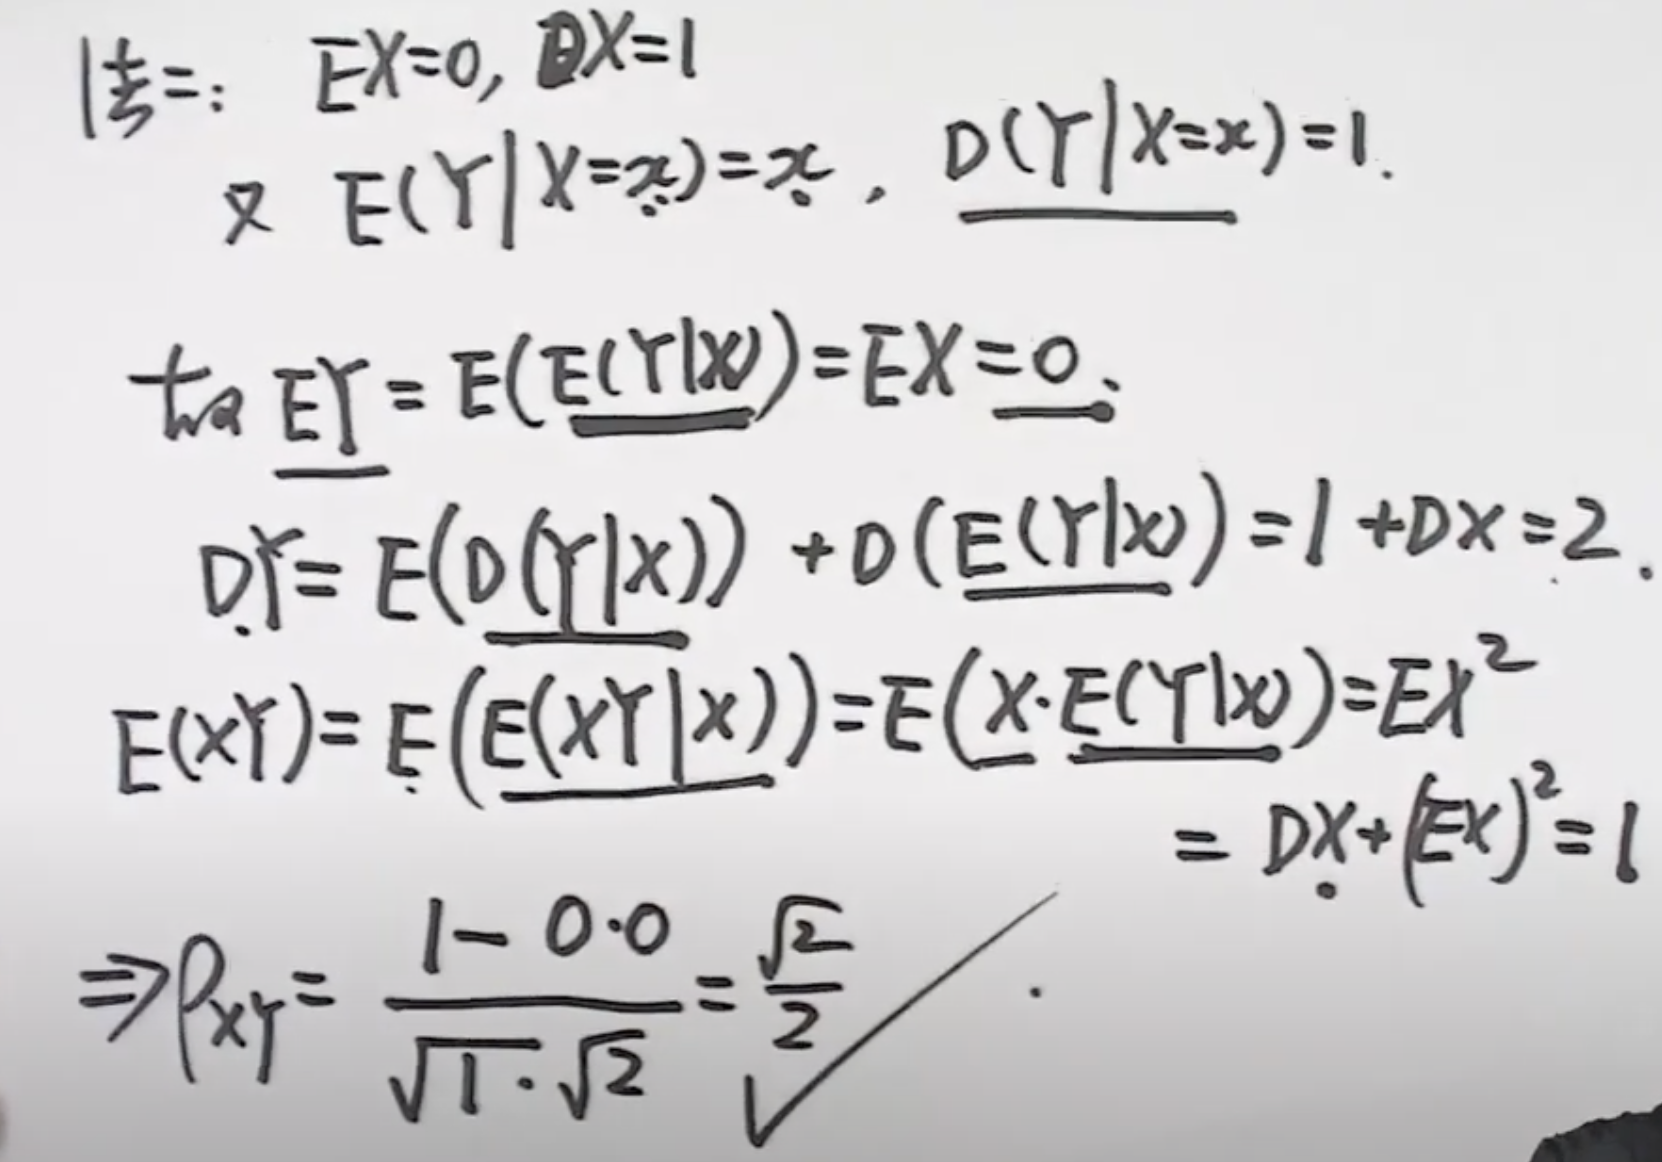 法二: EX=0, DX=1
又 E(Y|X=x)=x, D(Y|X=x)=1.
故 EY=E(E(Y|X))=EX=0.
DY=E(D(Y|X))+D(E(Y|X))=1+DX=2.
E(XY)=E(E(XY|X))=E(X·E(Y|X))=EX²
=DX+(EX)²=1
⇒ρ_XY=(1-0·0)/(√1·√2)=√2/2